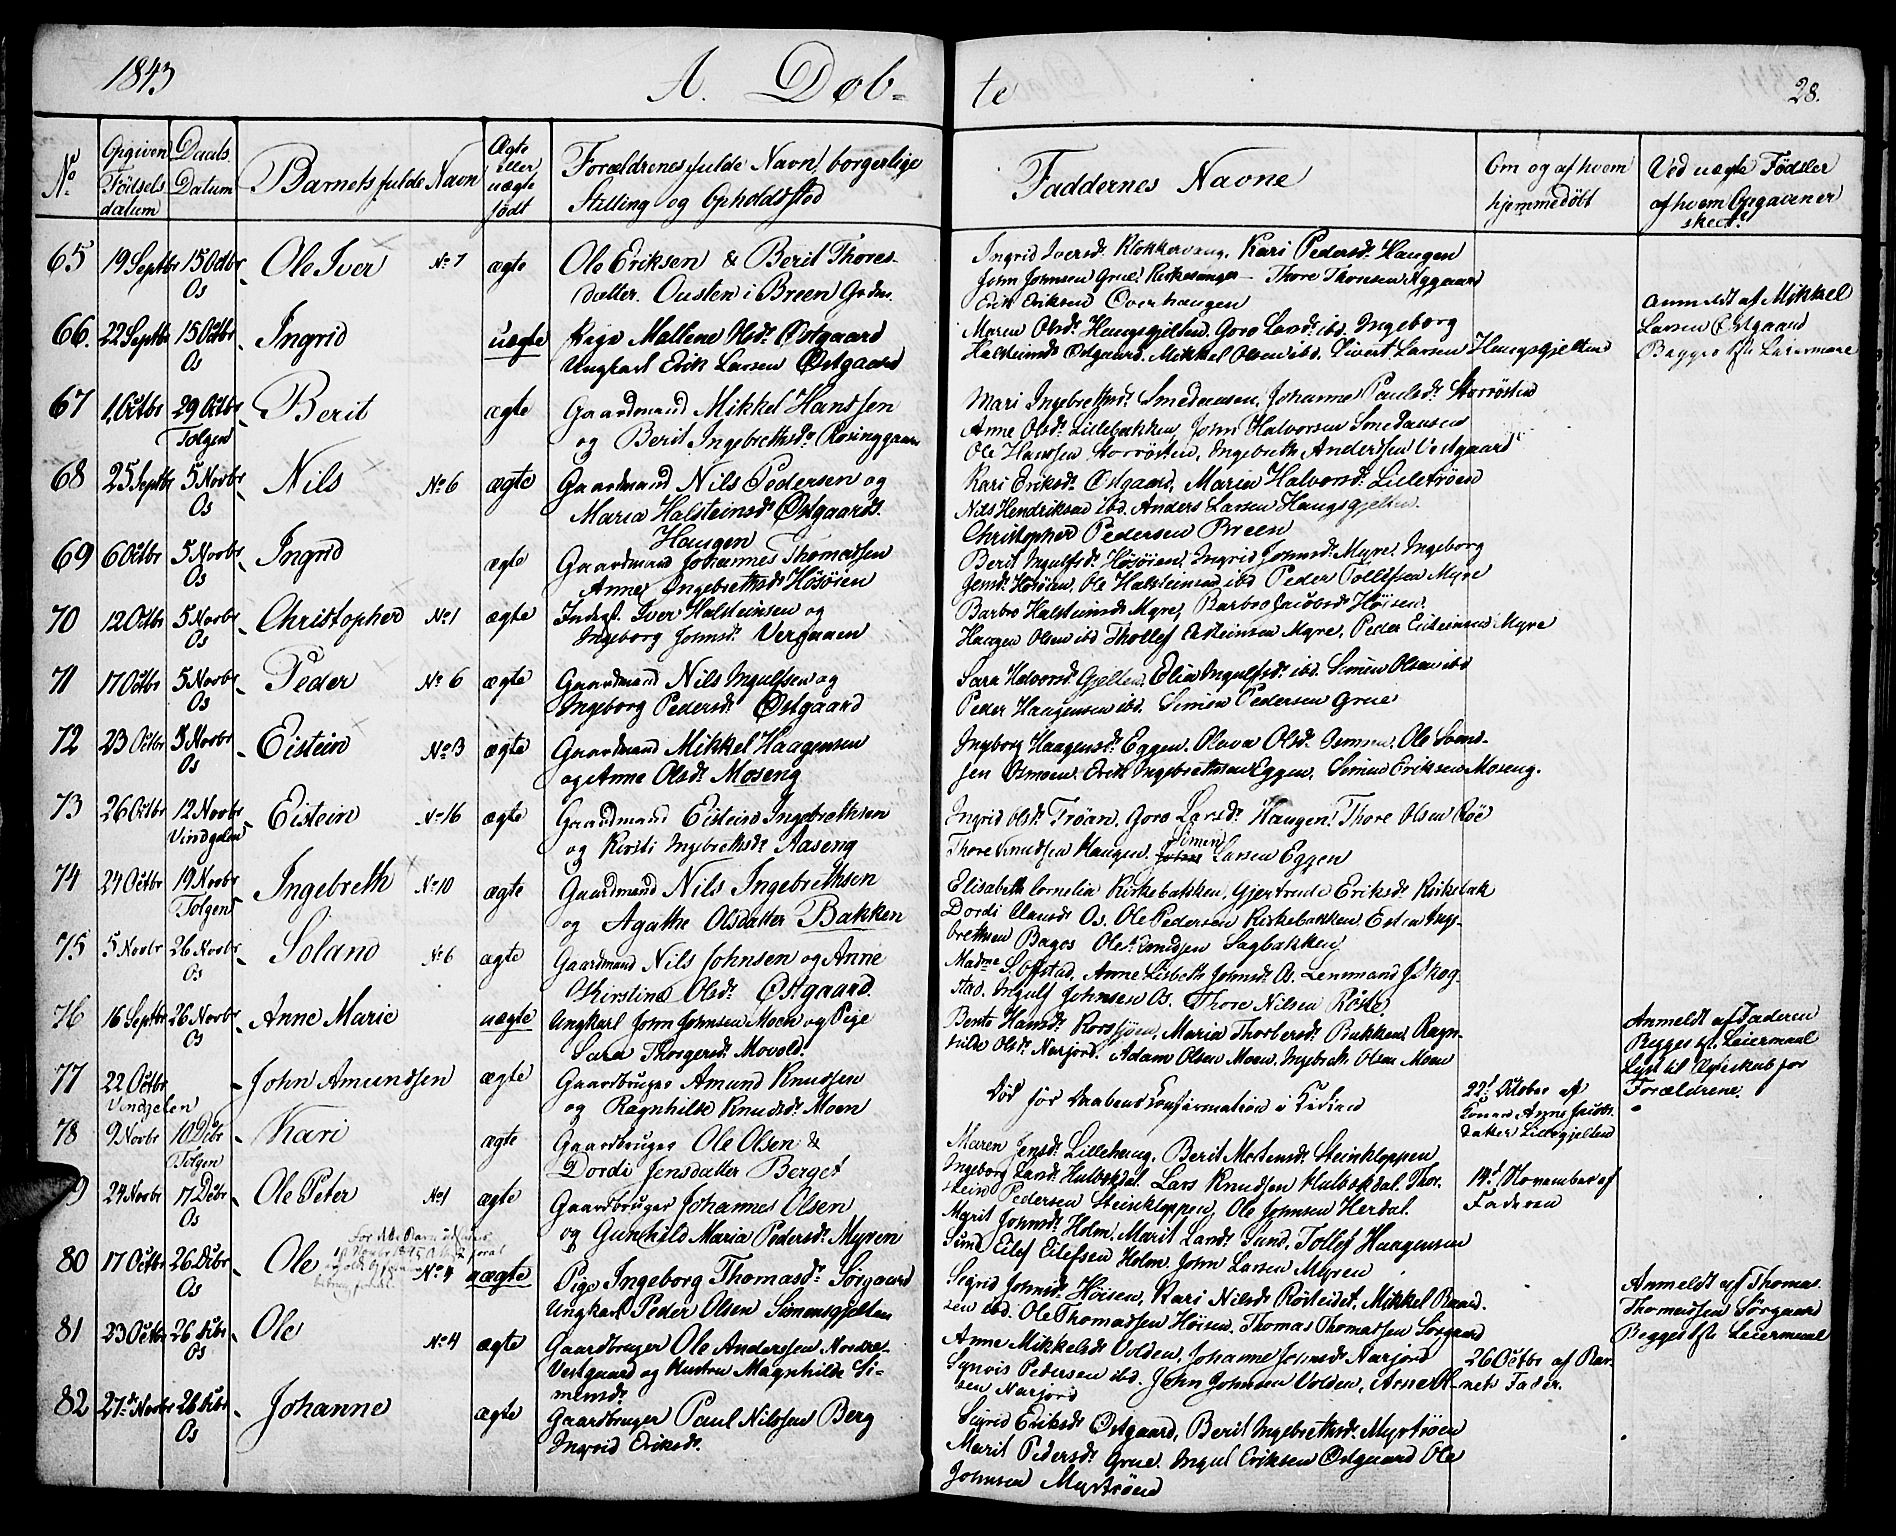 1843
A. Døb-
te
28.
No
Opgiven Fødsels datum
Daabs Datum
Barnets fulde Navn
Ægte eller uægte født
Forældrenes fulde Navn, borgerlige Stilling og Opholdssted
Faddernes Navne
Om og af hvem hjemmedøbt
Ved uægte Fødsler af hvem Opgaven er skeet?
65 19 Septbr 15 Octbr Os Ole Iver No 7 ægte Ole Eriksen & Berit Thores-
datter. Ousten i Breen
Ingrid Iversdr. Kari Pedersdr. Haugen
John Johnsen Grue, Kirkesanger - Thore Thoresen Nygaard
Erik Eriksen Overhaugen
66. 22 Septbr 15 Octbr Os Ingrid uægte Pige Mallene Olsdr. Østgaard
Ungkarl Erik Larsen Østgaard
Maren Olsdr. Haugsgjelten, Goro Larsdr. ibd. Ingeborg
Halsteinsdr. Østgaard. Mikkel Olsen ibd. Sivert Larsen Haugsgjelten
Anmeldt af Mikkel
Larsen Østgaard
Begges 1ste Leiermaal
67 1 Octbr 29 Octbr Tolgen Berit ægte Gaardmand Mikkel Hanssen
og Berit Ingebrethsdr.
Mari Ingebrethsdr. Smedaasen, Johannes Paulsdr. Storrøsten
Anne Olsdr. Lillebakken, John Halvorsen Smedaasen
Ole Hanssen Storrøsten, Ingebreth Anderssen Vestgaard
68 25 Septbr 5 Novbr Os Nils No 6 ægte Gaardmand Nils Pedersen og
Maria Halsteinsdr. Østgaard
Kari Eriksdr. Østgaard, Maria Halvorsdr. Lilletrøen
Nils Hendriksen ibd. Anders Larsen Haugsgjelten.
Christopher Pedersen Breen
69 6 Octbr 5 Novbr Os Ingrid ægte Haugen
Gaardmand Johannes Thomassen
Anne Ingebrethsdr. Høsøien
Berit Ingulfsdr. Høsøien, Ingrid Johnsdr. Myre, Ingeborg
Jensdr. Høsøien, Ole Halsteinsen ibd Peder Tollefsen Myre
70 12 Octbr 5 Novbr Os Christopher No 1 ægte Inderst. Iver Halsteinsen og
Ingeborg Johnsdr. Vergaaen
Barbro Halsteinsdr. Myre, Barbro Jacobsdr. Høisen.
Haagen Olsen ibd Thollef Eisteinsen Myre, Peder Eisteinsen Myre
71 17 Octbr 5 Novbr Os Peder No 6 ægte Gaardmand Nils Ingulfsen og
Ingeborg Pedersdr. Østgaard
Sara Halvorsdr. Gjelten. Elia Ingulfsdr. ibd. Simen Olsen ibd
Peder Haagensen ibd. Simen Pedersen Grue
72 23 Octbr 5 Novbr Os Eistein No 3 ægte Gaardmand Mikkel Haagensen
og Anne Olsdr. Moseng
Ingborg Haagensdr. Eggen. Olava Olsdr. Osmoen. Ole Simen-
sen Osmoen. Erik Ingebrethsen Eggen, Simen Eriksen Moseng.
73 26 Octbr 12 Novbr Vindgelen Eistein No 16 ægte Gaardmand Eistein Ingebrethsen
og Kirsti Ingebrethsdr. Aaseng
Ingrid Olsdr. Trøan. Goro Larsdr. Haugen, Thore Olsen Røe
Thore Knudsen Haugen. Simen Larsen Eggen
74 24 Octbr 19 Novbr Tolgen Ingebreth No 10 ægte Gaardmand Nils Ingebrethsen
og Agathe Olsdatter Bakken
Elisabeth Cornelia Kirkebakken, Gjertrude Eriksdr. Kirkebak
Dordi Olausdr. Os. Ole Pedersen Kirkebakken. Esten Inge-
brethsen Bages Ole Knudsen Sagbakken
75 5 Novbr 26 Novbr Os Soland No 6 ægte Gaardmand Nils Johnsen og Anne
Kirstine Olsdr. Østgaard.
Madme Soffstad, Anne Lisbeth Johnsdr. Os. Lensmand J. Skog-
stad. Ingulf Johnsen Os. Thore Nilsen Røste.
76 16 Septbr 26 Novbr Os Anne Marie uægte Ungkarl John Johnsen Moen og Pige
Sara Thorgersdr. Movold.
Bente Hansdr. Maria Thorbersdr. Bakken. Ragn-
hilde Olsdr. Narjord. Adam Olsen Moen, Ingebreth Olsen Moen
Anmeldt af Faderen
Begges 1st. Leiermaal
Lyst til Ægteskab for
Forældrene.
77 22 Octbr Vindgelen John Amundsen ægte Gaardbruger Amund Knudsen
og Ragnhilde Knudsdr. Moen
Død før Daabens Confirmation i Kirken
22d October af
Konen Anne Jacobs-
datter Lillegjelten
78 9 Novbr 10 Decbr Tolgen Kari ægte Gaardbruger Ole Olsen &
Dordi Jensdatter Berget
Maren Jensdr. Lillehaug, Berit Mortensdr. Steinkloppen
Ingeborg Larsdr. Hulbækdal. Lars Knudsen Hulbækdal. Thor-
stein Pedersen Steinkloppen, Ole Johnsen Herdal.
14d November af
Faderen
79 24 Novbr 17 Decbr Os Ole Peter No 1 ægte Gaardbruger Johannes Olsen
og Gunhild Maria Pedersdr. Myren
Marit Johnsdr. Holm, Marit Larsdr. Sund. Tollef Haagensen
Sund Eilef Eilefsen Holm. John Larsen Myren
80 17 Octbr 26 Decbr Os Ole No 4 uægte Pige Ingeborg Thomasdr. Sørgaard
Ungkarl Peder Olsen Simensgjelten
Sigrid Johnsdr. Høisen, Kari Nilsdr. Røsteidet, Mikkel
sen ibd. Ole Thomassen Høisen, Thomas Thomassen Sørgaard
Anmeldt af Thomas
Thomassen Sørgaard
Begges 1ste Leiermaal
81 23 Octbr 26 Decbr Os Ole No 4 ægte Gaardbruger Ole Anderssen Nordre-
Vestgaard og Hustru Magnhilde Si-
mensdr.
Anne Mikkelsdr. Volden, Johanne Johnsdr. Narjord
Synvis Pedersen ibd. John Johnsen Volden, Arne Ol-
sen Narjord
26 Octbr af Bar-
nets Fader.
82 27de Novbr 26 Decbr Os Johanne ægte Gaardbruger Paul Nilssen Berg
Ingrid Eriksdr.
Sigrid Eriksdr. Østgaard, Berit Ingebrethsdr. Myrtrøen
Marit Pedersdr. Grue, Ingul Eriksen Østgaard Ole
Johnsen Myrtrøen